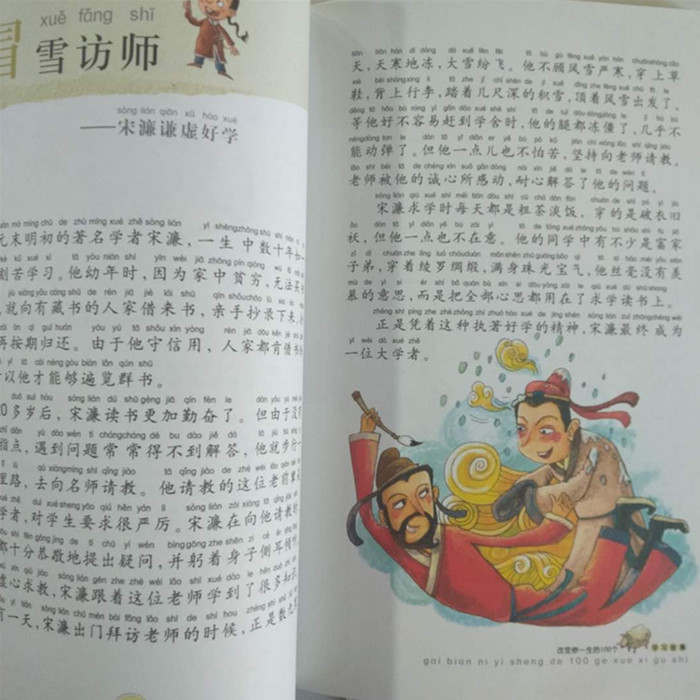 xuě fǎng shī
冒雪访师
sòng lián qiān xū hào xué
——宋濂谦虚好学
元末明初的著名学者宋濂，一生中数十年如一
刻苦学习。他幼年时，因为家中贫穷，无法买
就向有藏书的人家借来书，亲手抄录下来，
再按期归还。由于他守信用，人家都肯借书
所以他才能够遍览群书。
20多岁后，宋濂读书更加勤奋了。但由于没有
指点，遇到问题常常得不到解答，他就步行一
里路，去向名师请教。他请教的这位老前辈
学者，对学生要求很严厉。宋濂在向他请教时
都十分恭敬地提出疑问，并躬着身子侧耳倾听
虚心求教，宋濂跟着这位老师学到了很多知识
有一天，宋濂出门拜访老师的时候，正是数九
天，天寒地冻，大雪纷飞。他不顾风雪严寒，穿上草
鞋，背上行李，踏着几尺深的积雪，顶着风雪出发了。
等他好不容易赶到学舍时，他的腿都冻僵了，几乎不
能动弹了。但他一点儿也不怕苦，坚持向老师请教。
老师被他的诚心所感动，耐心解答了他的问题。
宋濂求学时每天都是粗茶淡饭，穿的是破衣旧
袄，但他一点也不在意。他的同学中有不少是富家
子弟，穿着绫罗绸缎，满身珠光宝气，他丝毫没有羡
慕的意思，而是把全部心思都用在了求学读书上。
正是凭着这种执著好学的精神，宋濂最终成为
一位大学者。
改变你一生的100个 学习故事
gai bian ni yi sheng de 100 ge xue xi gu shi